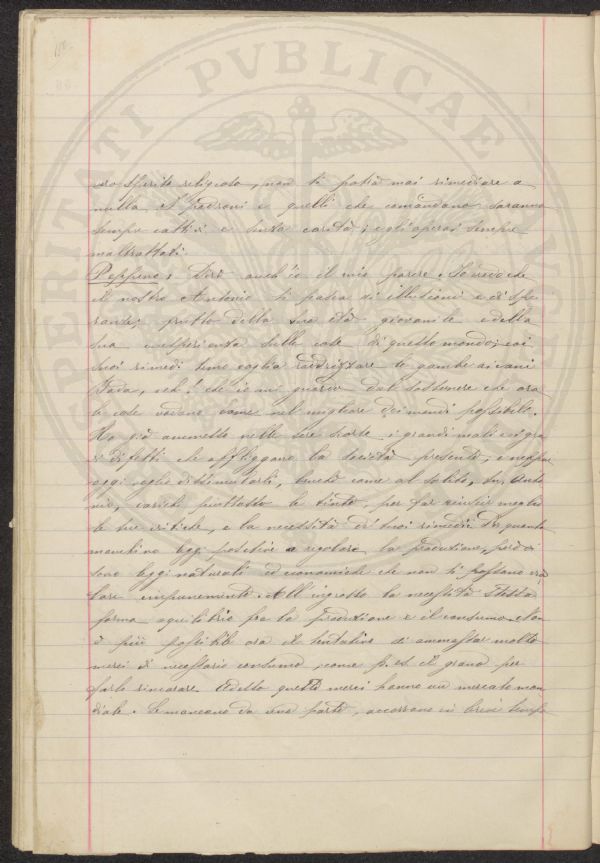 150.
PROSPERITATI PVBLICAE
vero spirito religioso, non si potrà mai rimediare a
nulla. I padroni e quelli che comandano saranno
sempre cattivi e senza carità; e gli operai sempre
maltrattati.
Peppino: Dirò anch'io il mio parere. Io vedo che
il nostro Antonio si pasce di illusioni e di spe
ranze, frutto della sua età giovanile e della
sua inesperienza delle cose di questo mondo; coi
suoi rimedi vuol raddrizzare le gambe ai cani
Bada, veh! che io mi guardo dal sostenere che ora
le cose vadano come nel migliore dei mondi possibile.
Ho già ammesso nelle sere scorte i grandi mali e i gra
vi difetti che affliggono la società presente, e neppur
oggi voglio dissimularli, benchè come al solito, tu, Anto
nio, carichi piuttosto le tinte, per far riuscir meglio
le tue critiche, e la necessità de' tuoi rimedi. In quanto
manchino leggi positive a regolare la produzione, però vi
sono leggi naturali ed economiche che non si possono vio
lare impunemente. All'ingrosso la necessità stessa
forma equilibrio fra la produzione e il consumo. Non
è più possibile ora il tentativo di ammassar molte
merci di necessario consumo, come p. es. il grano per
farle rincarare. Adesso queste merci hanno un mercato mon
diale. Se mancano da una parte, accorrono in breve tempo